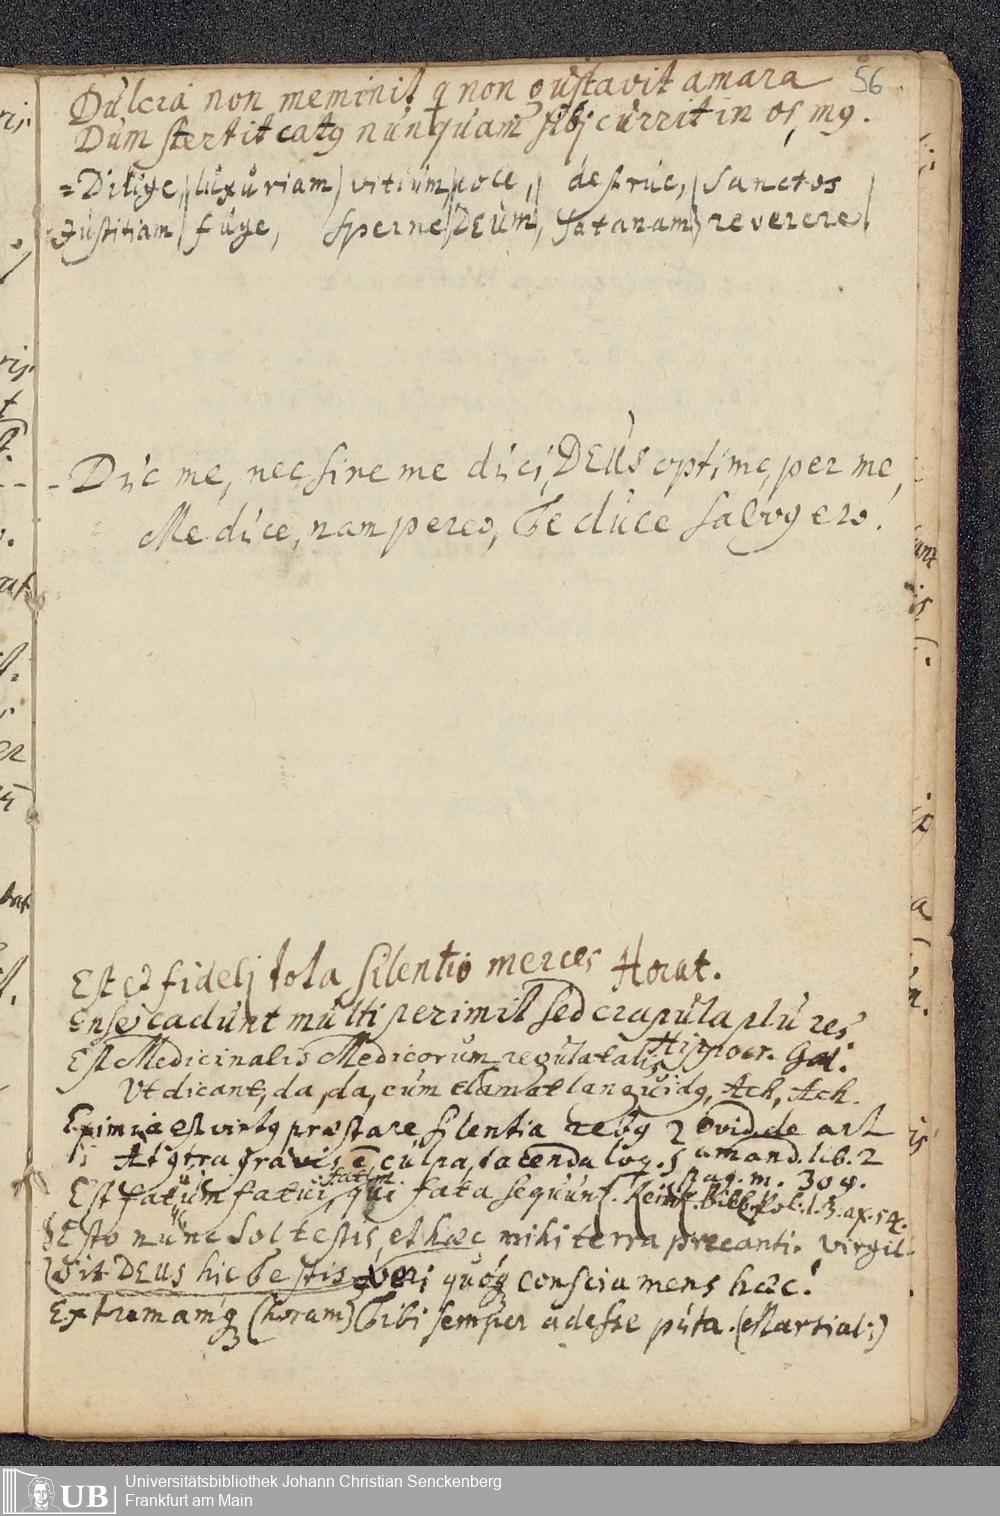 56
Dulcia non meminit q non gustavit amara
Dum stertit catꝰ nunquam sibj currit in os mꝰ.
=Dilige, luxuriam) vitium, noce, destrue, Sanctos
Justitiam) fuge, sperne) DEUM, Satanam) reverere.
Dic me, nec sine me dici, DEUS optime, per me,
Me duce, nam pereo, Te duce salvꝰ ero.
Est et fidelj tota silentio merces Horat.
Ense cadunt multi perimit sed crapula plures.
Est Medicinalis Medicorum regula talis Hippocr. Gal.
Ut dicant, da, da, cum clamat languidꝰ, Ach, Ach.
Eximia est virtꝰ præstare silentia rebꝰ Ovid. de art
At ꝯtra gravis ē culpa, tacenda loq. amand. lib. 2
pag. m. 304.
Est fatuum fatui, fatum qui fata sequunt. Reinh. Bibl. Pol. l. 3. ax. 54.
Esto nunc Sol testis, et hæc mihi terra precanti. Virgil.
Sit DEUS hic Testis veri quóq conscia mens hæc!
Extremamq (horam) Tibi semper adesse puta. (Martial:)
UB
Universitätsbibliothek Johann Christian Senckenberg
Frankfurt am Main